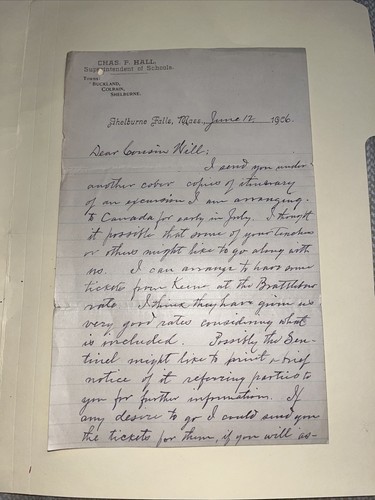 CHAS. F. HALL,
Superintendent of Schools.
Towns:
BUCKLAND,
COLRAIN,
SHELBURNE.
Shelburne Falls, Mass., June 12, 1906.
Dear Cousin Will:
I send you under
another cober copies of itinerary
of an excursion I am arranging
to Canada for early in July. I thought
it possible that some of your teachers
or others might like to go along with
us. I can arrange to have some
tickets from Keene at the Brattleboro
rate. I think they have given us
very good rates considering what
is included. Possibly the Sen-
tinel might like to print a brief
notice of it referring parties to
you for further information. If
any desire to go I could send you
the tickets for them, if you will as-